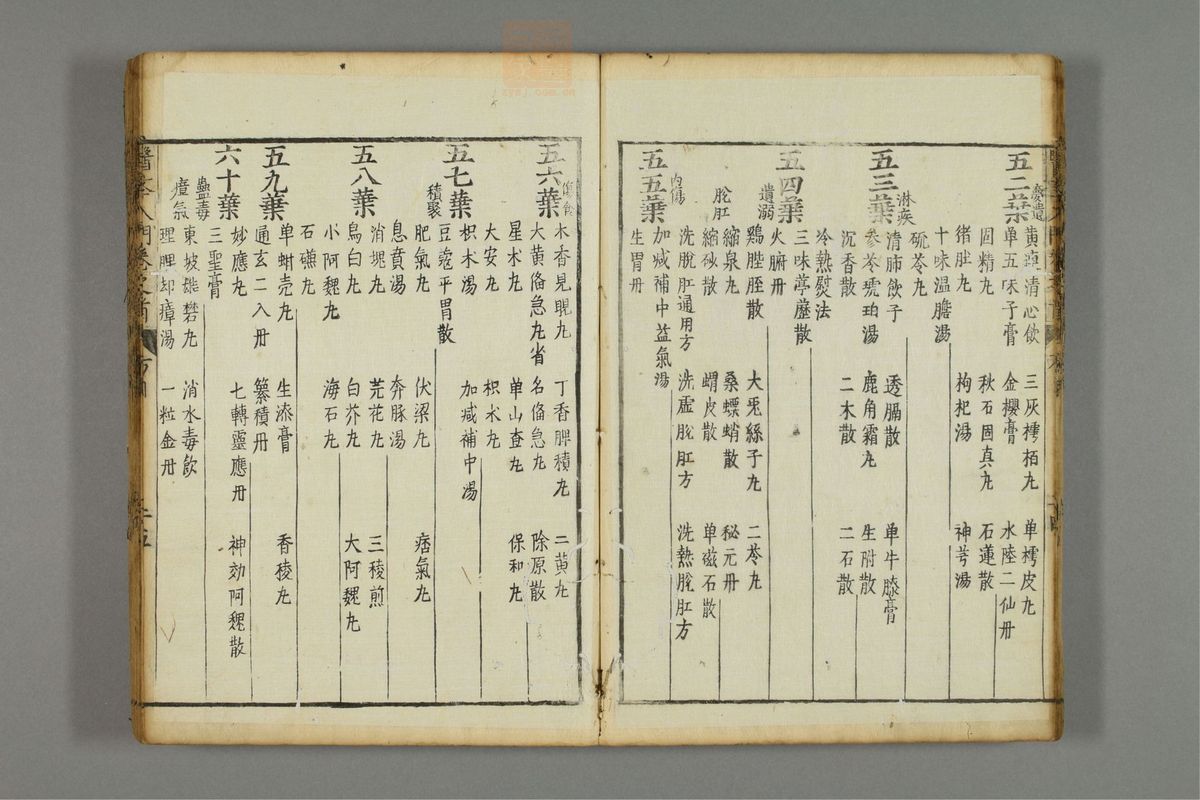 五二葉
黄連清心飲 三灰樗栢丸 单樗皮丸
单五味子膏 金櫻膏 水陸二仙丹
固精丸 秋石固真丸 石蓮散
猪肚丸
十味温膽湯 枸杞湯 神芎湯
硫苓丸
五三葉 淋疾
清肺飲子 透膈散 单牛膝膏
参苓琥珀湯 鹿角霜丸 生附散
沉香散 二木散 二石散
冷熱熨法
三味葶藶散
五四葉
火腑丹
遺溺
鷄䏶胵散 大兎絲子丸 二苓丸
縮泉丸 桑螵蛸散 秘元丹
脫肛
縮砂散 蝟皮散 单磁石散
洗脫肛通用方 洗虛脫肛方 洗熱脫肛方
内傷
加减補中益氣湯
五五葉
生胃丹
五六葉 傷食
木香見晛丸 丁香脾積丸 二黄丸
大黄俻急丸省名俻急丸 除原散
星术丸 单山查丸 保和丸
大安丸 枳术丸
枳木湯 加减補中湯
五七葉
豆蔻平胃散
積聚
肥氣丸 伏梁丸 痞氣丸
息賁湯 奔豚湯
消塊丸 芫花丸 三稜煎
五八葉
鳥白丸 白芥丸 大阿魏丸
小阿魏丸 海石丸
石礁丸
五九葉
单蚶壳丸 生漆膏 香稜丸
通玄二八丹 纂積丹
妙應丸 七轉靈應丹 神効阿魏散
六十葉
三聖膏
蠱毒
東坡雄礬丸 消水毒飲
瘴氣
理脾却瘴湯 一粒金丹